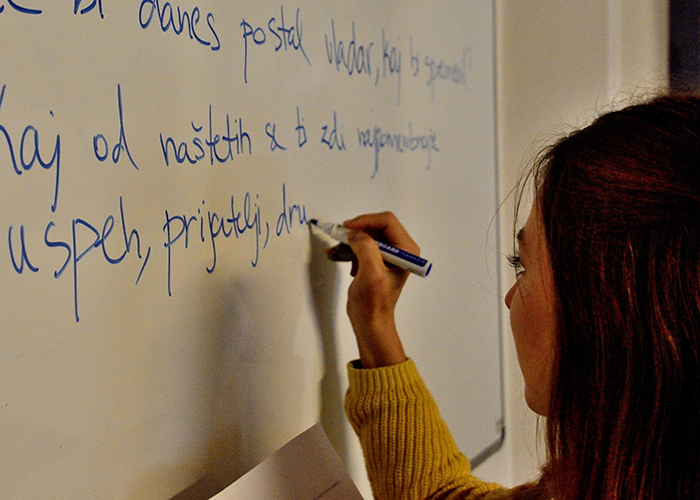 bi danes postal vladar, kaj bi spremenil?
Kaj od naštetih se ti zdi najpomembnejše
uspeh, prijatelji, dru